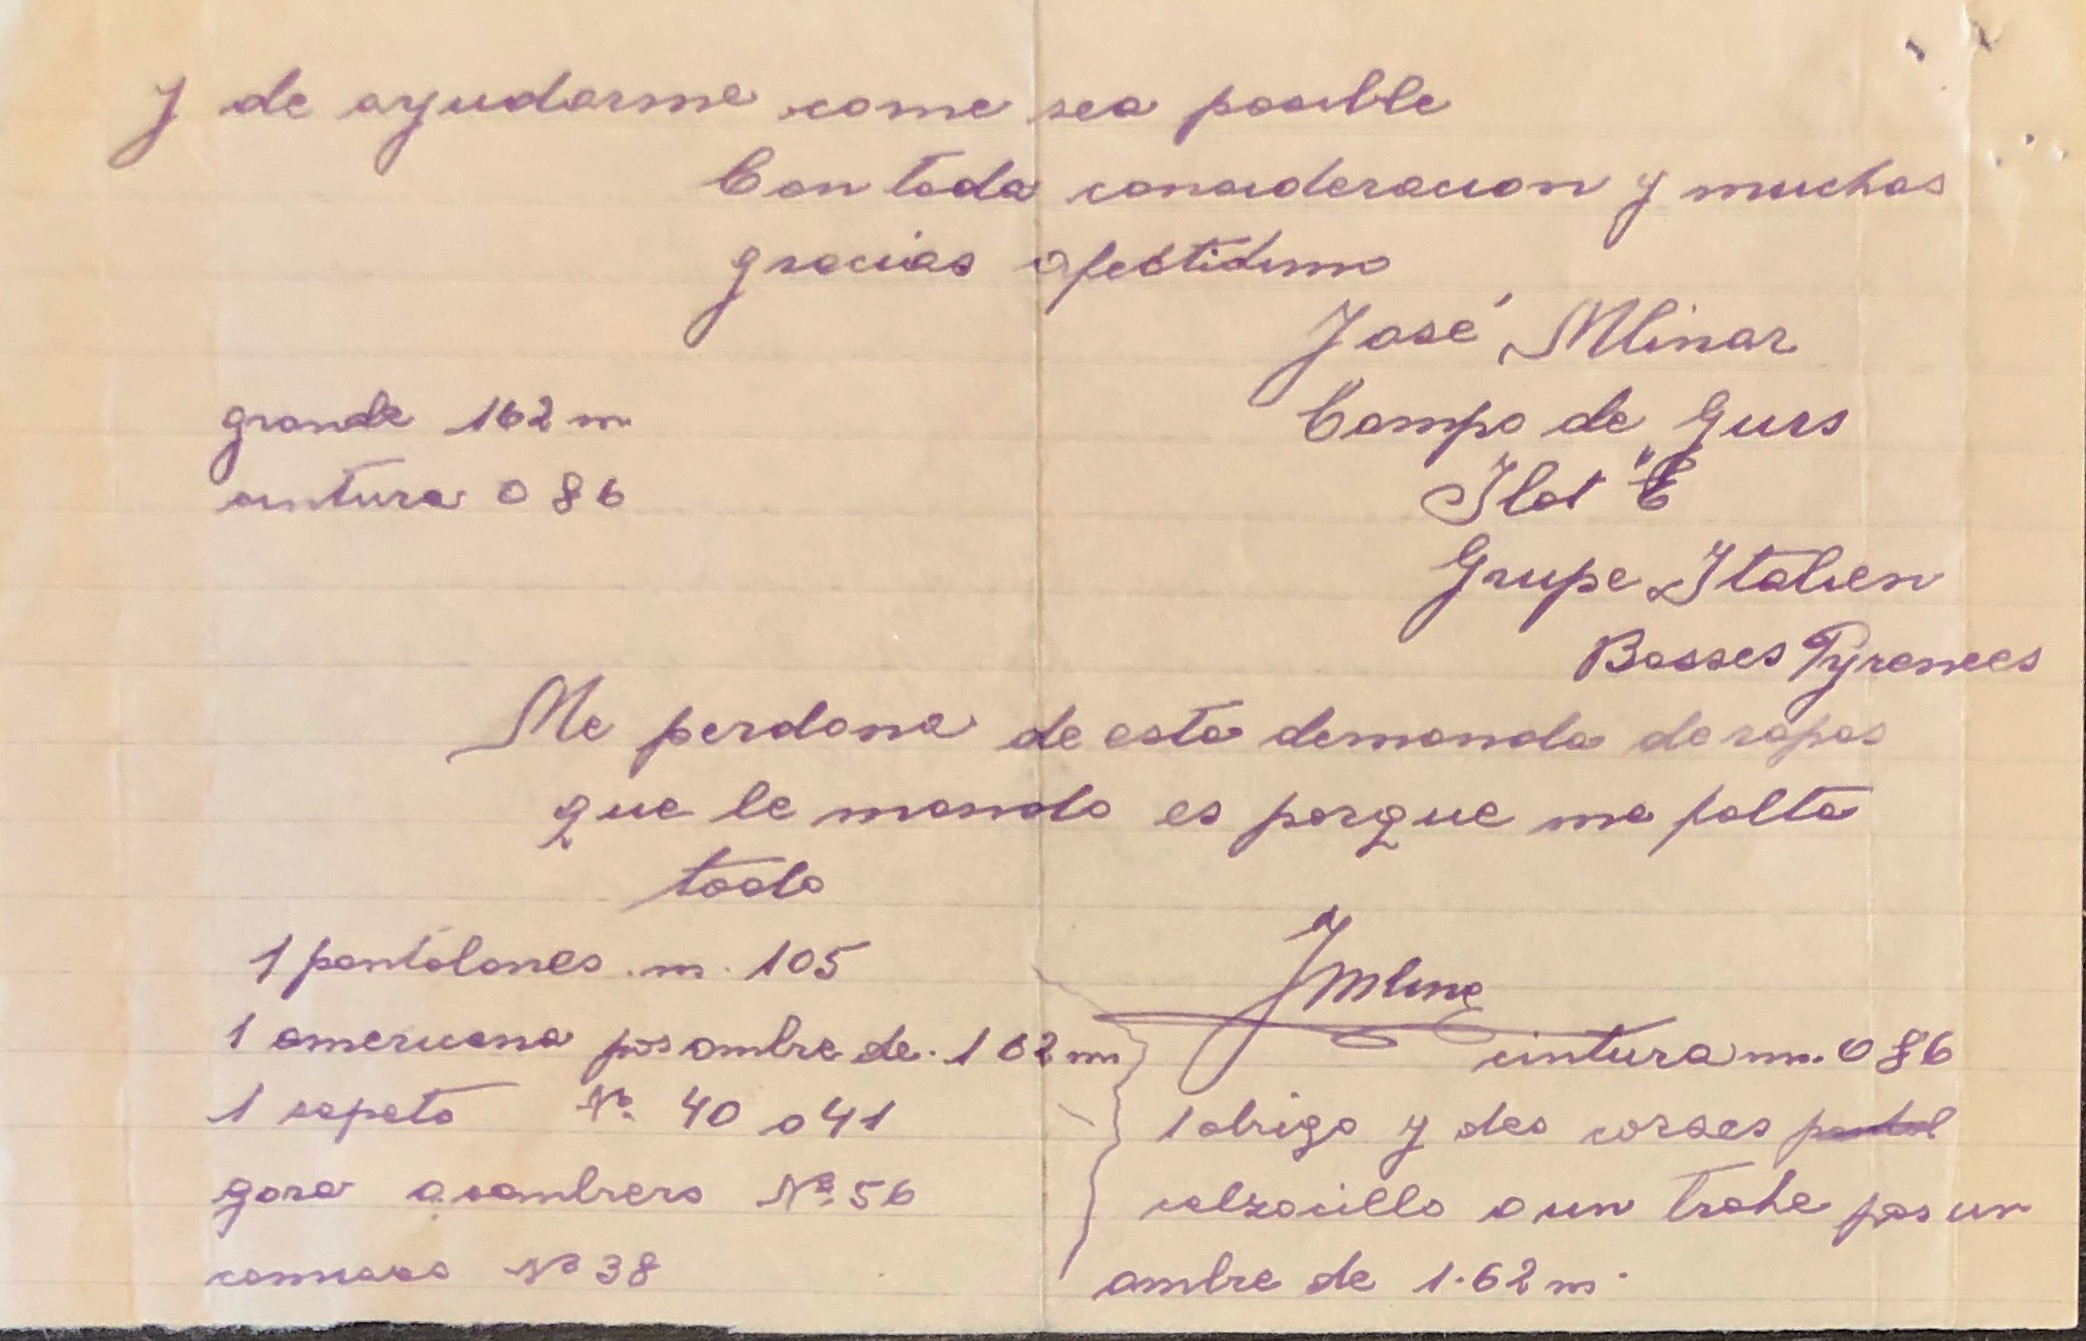 y de ayudarme come sea posible
Con toda consideracion y muchas
gracias afectidimo
José Mlinar
grande 162 m
Campo de Gurs
cintura 0 86
Ilot "E
Grupe Italien
Basses Pyrenees
Me perdona de esta demanda de ropas
que le mando es porque me falta
todo
1 pantalones . m. 105
1 americana por ombre de . 1 62 m
cintura m. 0 86
1 sapato No. 40 o 41
1 abrigo y dos corses
gora o sombrero No. 56
calzocillo o un trahe por un
camisas No 38
ombre de 1.62 m.